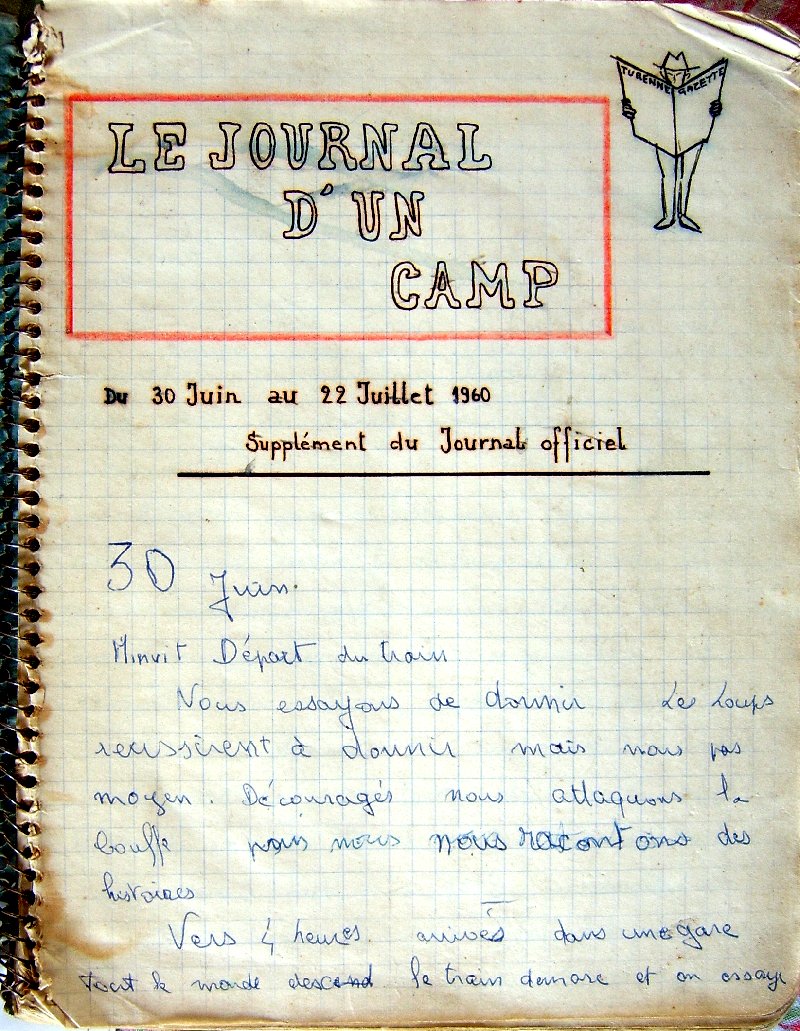 TURENNE GAZETTE
LE JOURNAL
D'UN
CAMP
Du 30 Juin au 22 Juillet 1960
Supplément du Journal officiel
30 Juin.
Minuit Départ du train
Nous essayons de dormir Les Loups
reussirent à dormir mais nous pas
moyen. Découragés nous attaquons la
bouffe puis nous nous racontons des
histoires
Vers 4 heures arrivés dans une gare
Tout le monde descend le train demare et on essaye